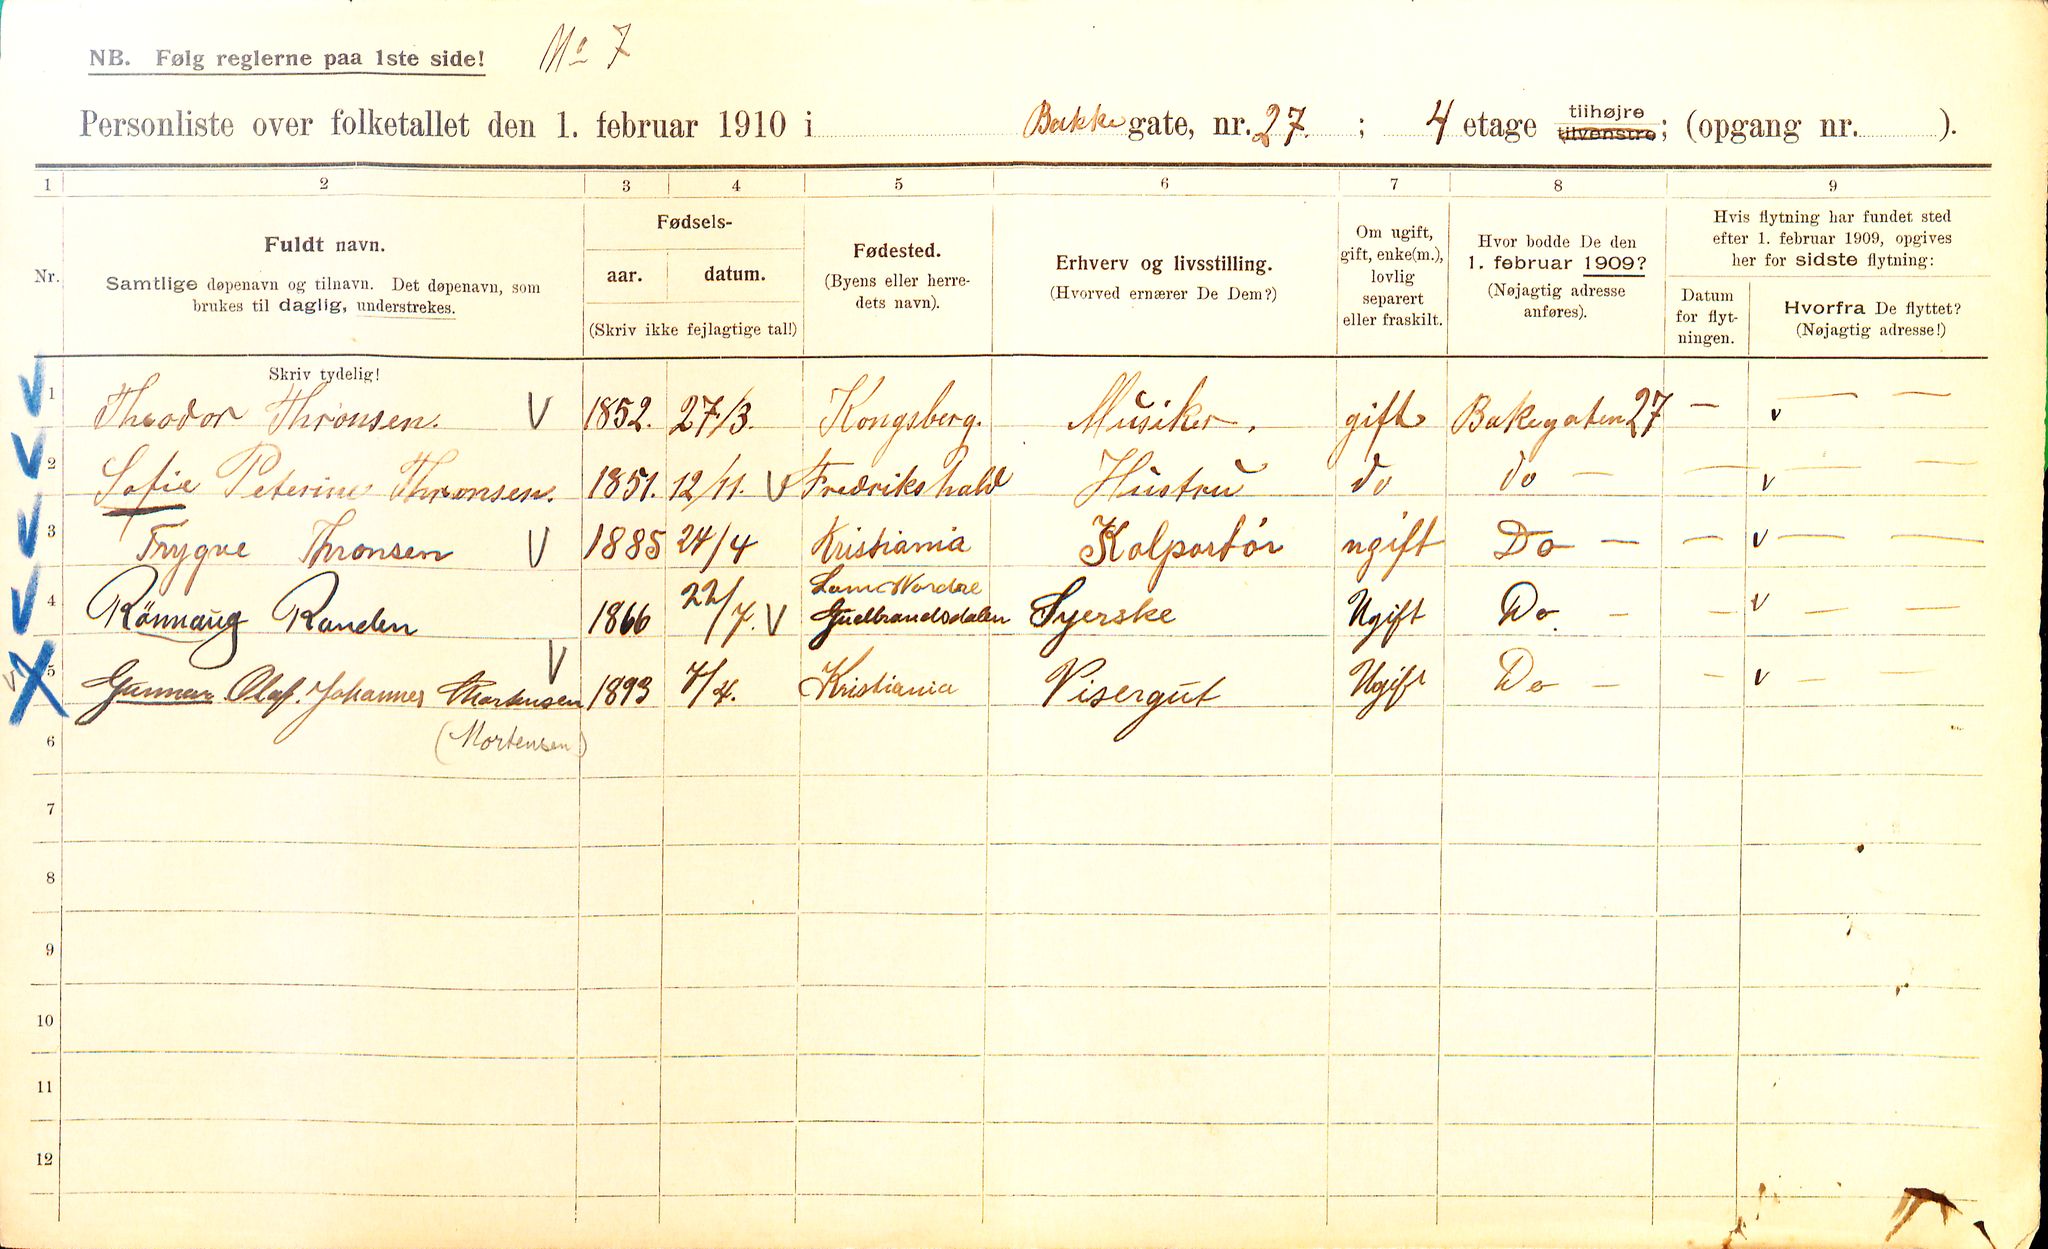 NB. Følg reglerne paa 1ste side! No 7
Personliste over folketallet den 1. februar 1910 i Bakke gate, nr. 27. ; 4 etage tilhøjre tilvenstre; (opgang nr. ).
1 2 3 4 5 6 7 8 9
Nr.
Fuldt navn.
Samtlige døpenavn og tilnavn. Det døpenavn, som
brukes til daglig, understrekes.
Fødsels-
aar. datum.
(Skriv ikke fejlagtige tal!)
Fødested.
(Byens eller herre-
dets navn).
Erhverv og livsstilling.
(Hvorved ernærer De Dem?)
Om ugift,
gift, enke(m.),
lovlig
separert
eller fraskilt.
Hvor bodde De den
1. februar 1909?
(Nøjagtig adresse
anføres).
Hvis flytning har fundet sted
efter 1. februar 1909, opgives
her for sidste flytning:
Datum
for flyt-
ningen.
Hvorfra De flyttet?
(Nøjagtig adresse!)
Skriv tydelig!
1 Theodor Thronsen. V 1852. 27/3. Kongsberg. Musiker. gift Bakegaten 27 — v — —
2 Sofie Peterine Thronsen. 1851. 12/11. V Fredrikshald Hustru do do — — v — —
3 Trygve Thronsen V 1885 24/4 Kristiania Kolportör ugift Do — — v — —
4 Rönnaug Randen 1866 22/7. V Lom Nordre
Gudbrandsdalen Syerske Ugift Do. — — v — —
5 Gunnar Olaf. Johannes Martensen V 1893 7/4. Kristiania Visergut Ugift Do — — v — —
(Mortensen)
6
7
8
9
10
11
12